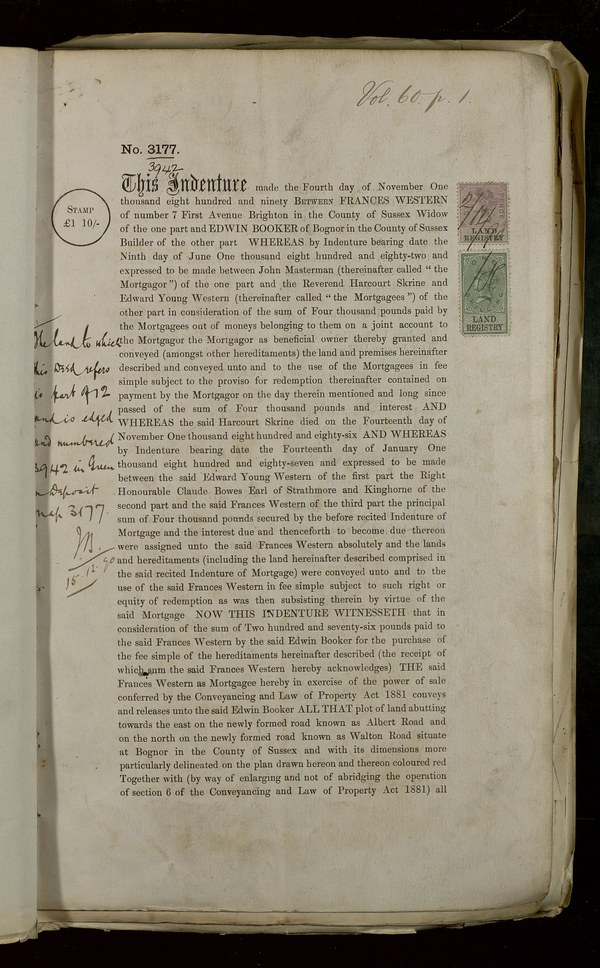 Vol. 60. p. 1.
No. 3177.
3942
This Indenture made the Fourth day of November One
thousand eight hundred and ninety BETWEEN FRANCES WESTERN
of number 7 First Avenue Brighton in the County of Sussex Widow
of the one part and EDWIN BOOKER of Bognor in the County of Sussex
Builder of the other part WHEREAS by Indenture bearing date the
Ninth day of June One thousand eight hundred and eighty-two and
expressed to be made between John Masterman (thereinafter called “ the
Mortgagor ”) of the one part and the Reverend Harcourt Skrine and
Edward Young Western (thereinafter called “ the Mortgagees ”) of the
other part in consideration of the sum of Four thousand pounds paid by
the Mortgagees out of moneys belonging to them on a joint account to
the Mortgagor the Mortgagor as beneficial owner thereby granted and
conveyed (amongst other hereditaments) the land and premises hereinafter
described and conveyed unto and to the use of the Mortgagees in fee
simple subject to the proviso for redemption thereinafter contained on
payment by the Mortgagor on the day therein mentioned and long since
passed of the sum of Four thousand pounds and interest AND
WHEREAS the said Harcourt Skrine died on the Fourteenth day of
November One thousand eight hundred and eighty-six AND WHEREAS
by Indenture bearing date the Fourteenth day of January One
thousand eight hundred and eighty-seven and expressed to be made
between the said Edward Young Western of the first part the Right
Honourable Claude Bowes Earl of Strathmore and Kinghorne of the
second part and the said Frances Western of the third part the principal
sum of Four thousand pounds secured by the before recited Indenture of
Mortgage and the interest due and thenceforth to become due thereon
were assigned unto the said Frances Western absolutely and the lands
and hereditaments (including the land hereinafter described comprised in
the said recited Indenture of Mortgage) were conveyed unto and to the
use of the said Frances Western in fee simple subject to such right or
equity of redemption as was then subsisting therein by virtue of the
said Mortgage NOW THIS INDENTURE WITNESSETH that in
consideration of the sum of Two hundred and seventy-six pounds paid to
the said Frances Western by the said Edwin Booker for the purchase of
the fee simple of the hereditaments hereinafter described (the receipt of
which sum the said Frances Western hereby acknowledges) THE said
Frances Western as Mortgagee hereby in exercise of the power of sale
conferred by the Conveyancing and Law of Property Act 1881 conveys
and releases unto the said Edwin Booker ALL THAT plot of land abutting
towards the east on the newly formed road known as Albert Road and
on the north on the newly formed road known as Walton Road situate
at Bognor in the County of Sussex and with its dimensions more
particularly delineated on the plan drawn hereon and thereon coloured red
Together with (by way of enlarging and not of abridging the operation
of section 6 of the Conveyancing and Law of Property Act 1881) all
STAMP
£1 10/-
The land to which
this Deed refers
is part of 12
and is edged
and numbered
3942 in Green
on Deposit
map 3177.
15.12.90
LAND
REGISTRY
LAND
REGISTRY